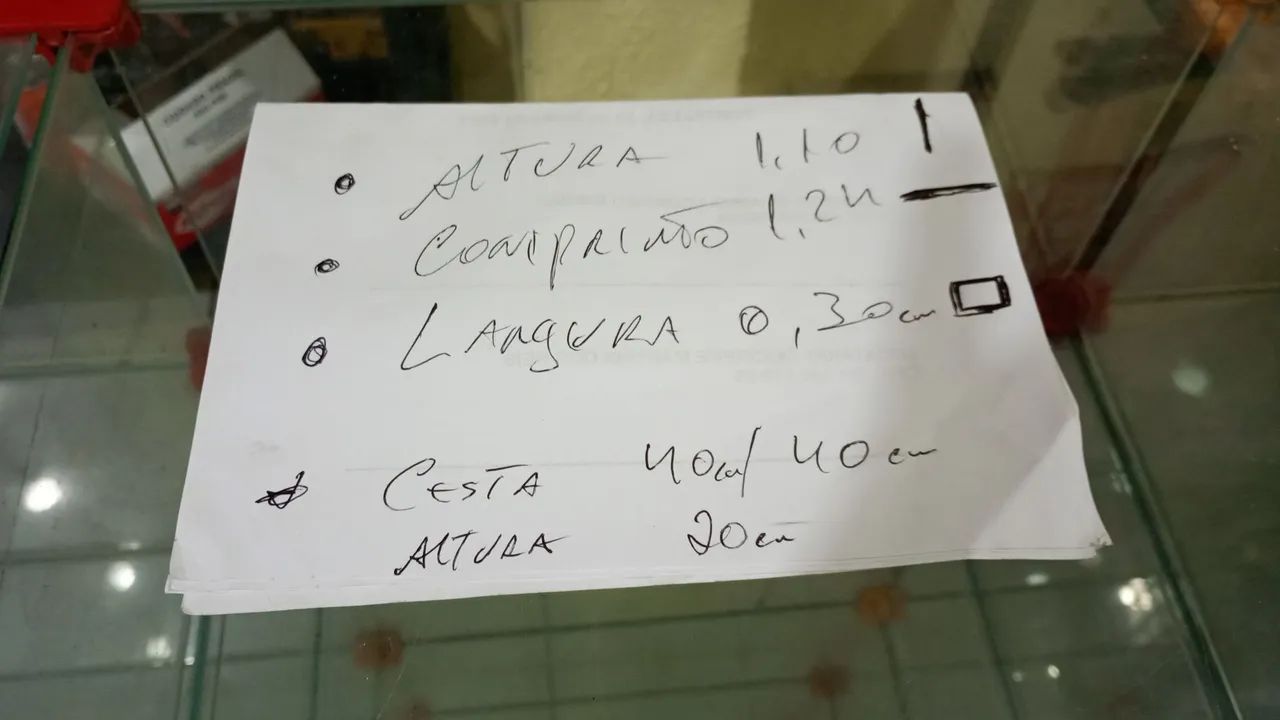 ALTURA 1,10
COMPRIMTO 1,24
LARGURA 0,30cm
CESTA 40cm/ 40cm
ALTURA 20cm